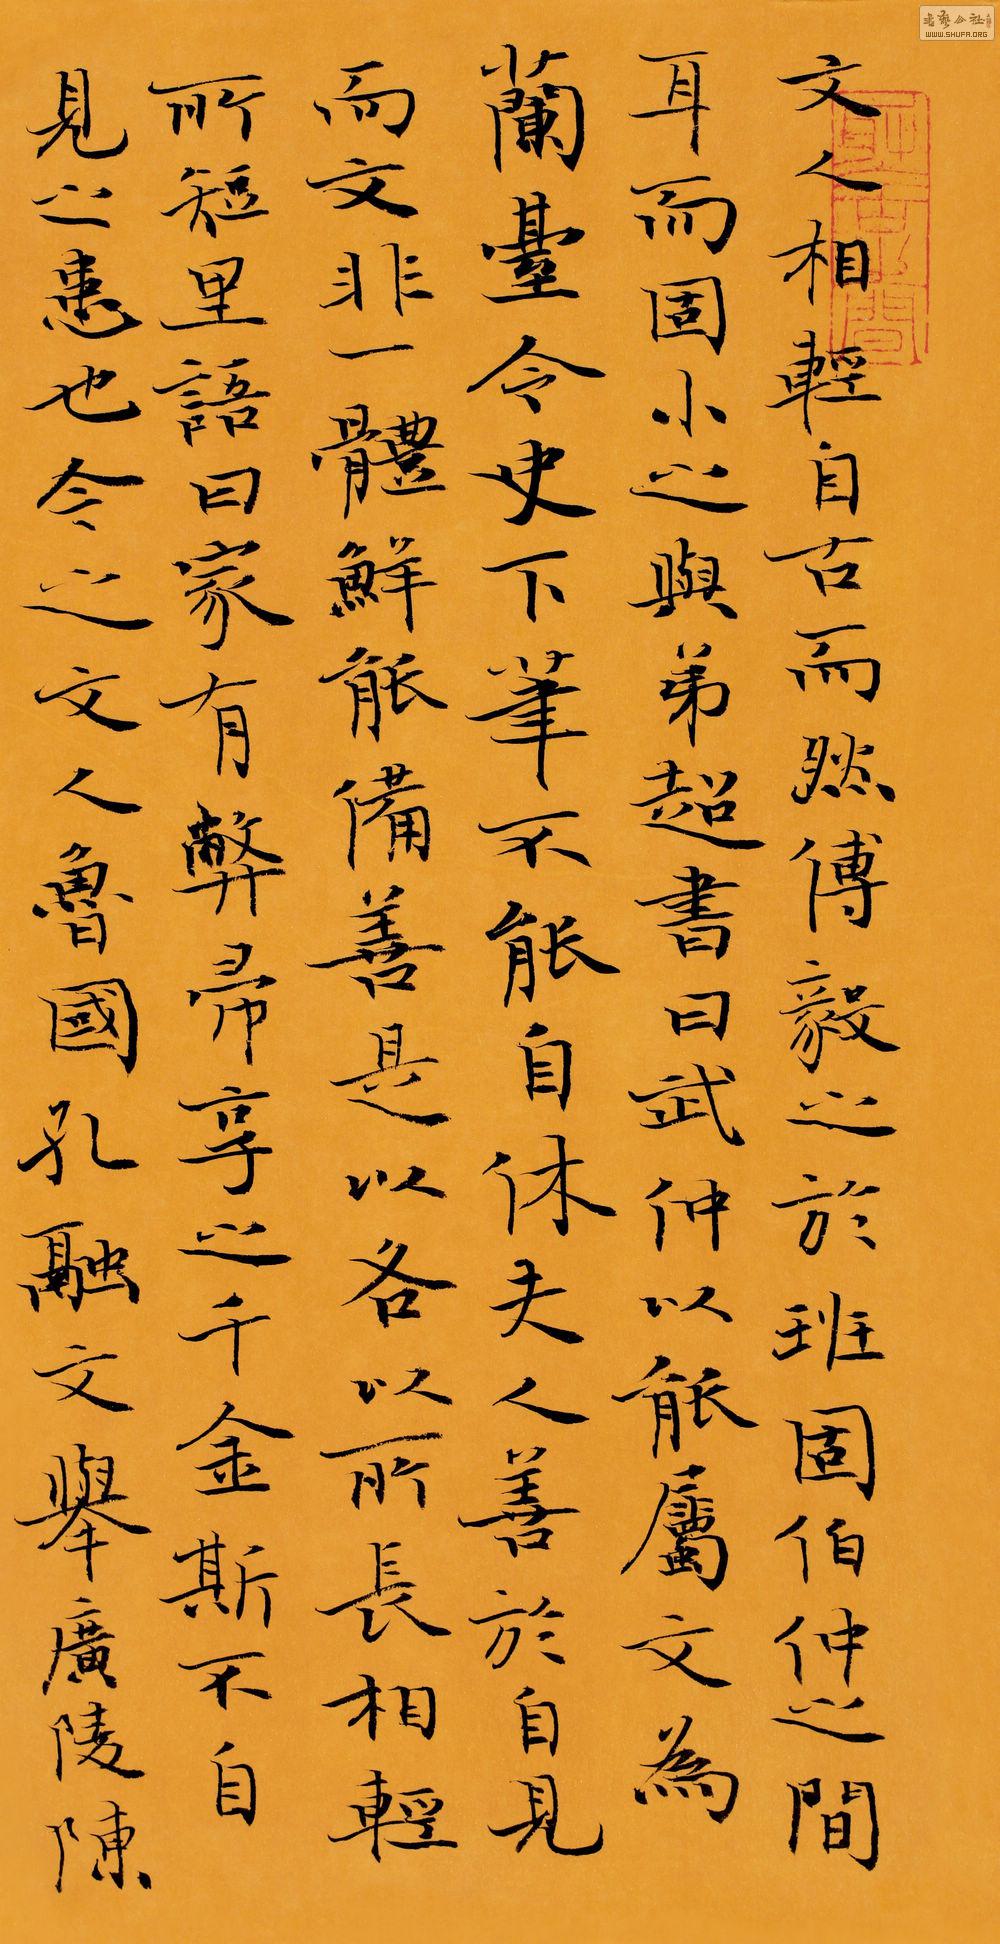 文人相輕自古而然傅毅之於班固伯仲之間
耳而固小之與弟超書曰武仲以能屬文為
蘭臺令史下筆不能自休夫人善於自見
而文非一體鮮能備善是以各以所長相輕
所短里語曰家有弊帚享之千金斯不自
見之患也今之文人魯國孔融文舉廣陵陳
WWW.SHUFA.ORG